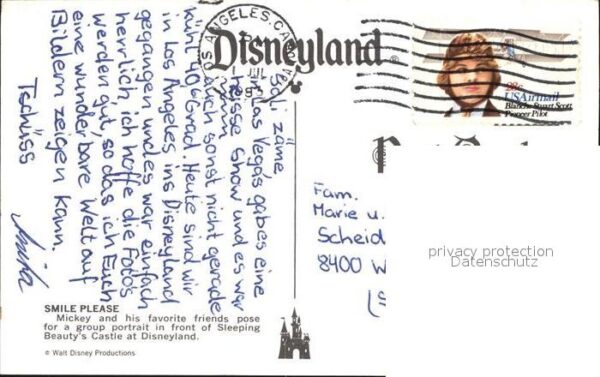 LOS ANGELES, CA
Disneyland®
USAirmail
Blanche Stuart Scott
Pioneer Pilot
Sali zäme
In Las Vegas gabes eine
heisse Show und es war
auch sonst nicht gerade
kühl 40,6 Grad. Heute sind wir
in Los Angeles ins Disneyland
gegangen und es war einfach
herrlich, ich hoffe die Fotos
werden gut, so das ich Euch
eine wunderbare Welt auf
Bildern zeigen kann.
Tschüss
Fam.
Marie u.
Scheid
8400 W
privacy protection
Datenschutz
SMILE PLEASE
Mickey and his favorite friends pose
for a group portrait in front of Sleeping
Beauty's Castle at Disneyland.
© Walt Disney Productions